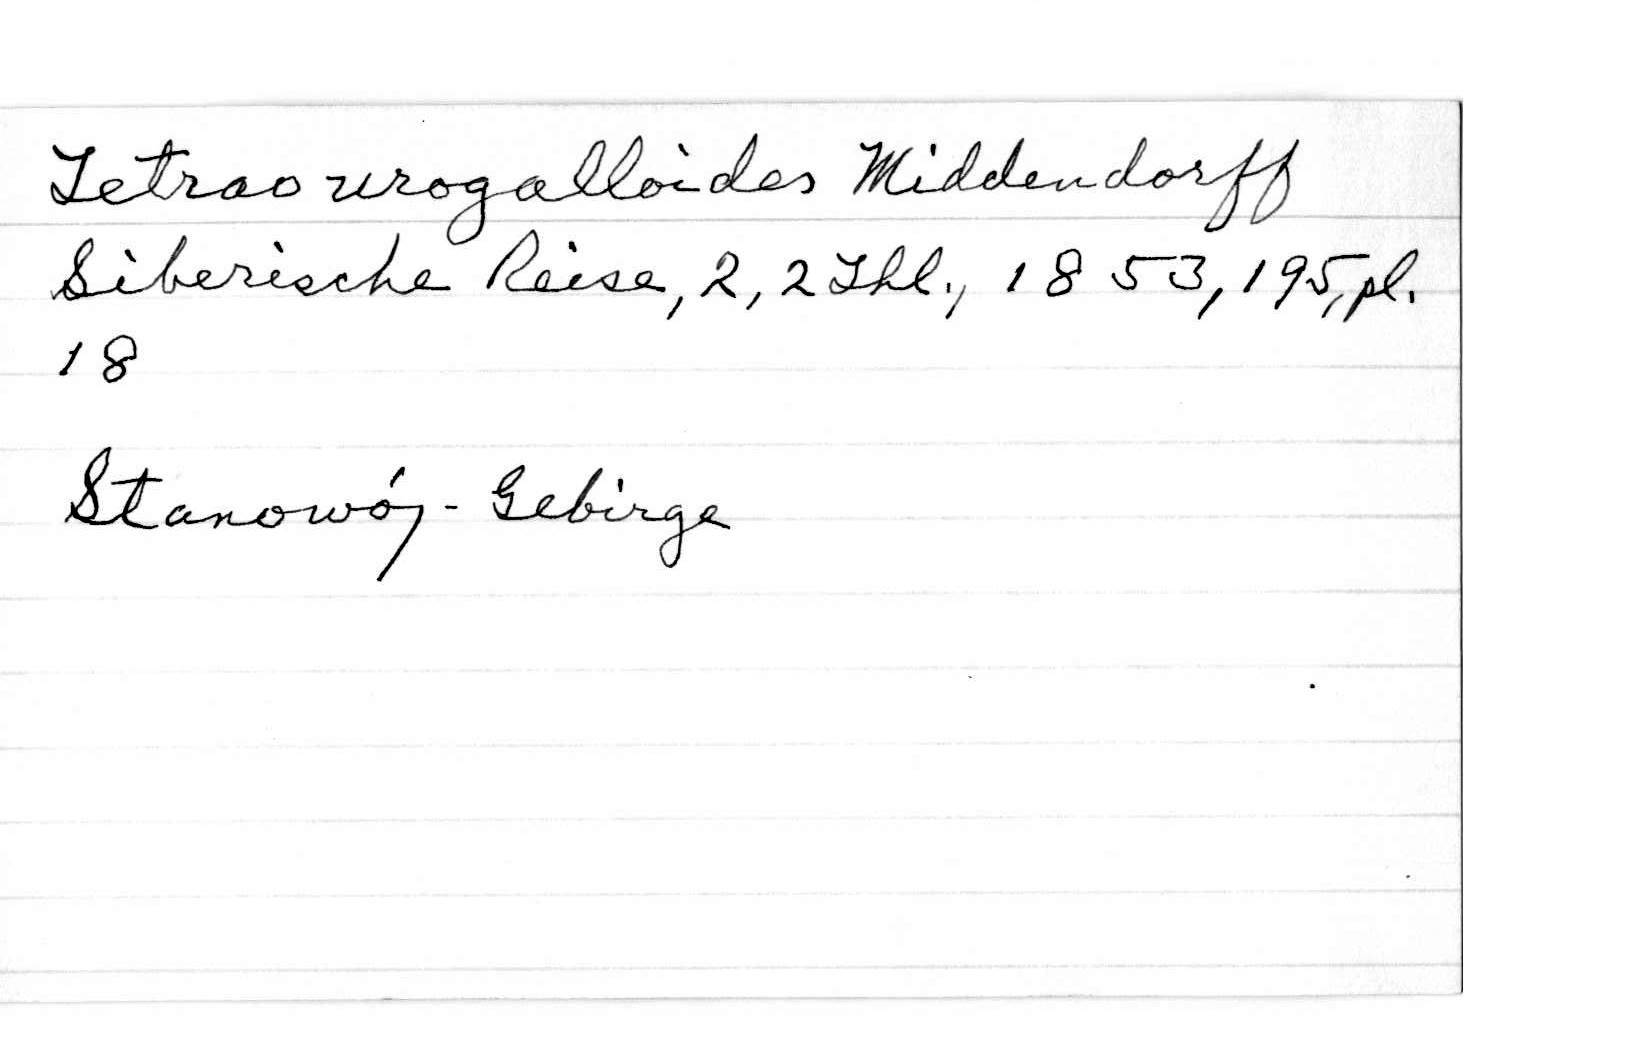 Tetrao urogalloides Middendorff
Siberische Reise, 2, 2 Thl., 1853, 195, pl.
18
Stanowój-Gebirge